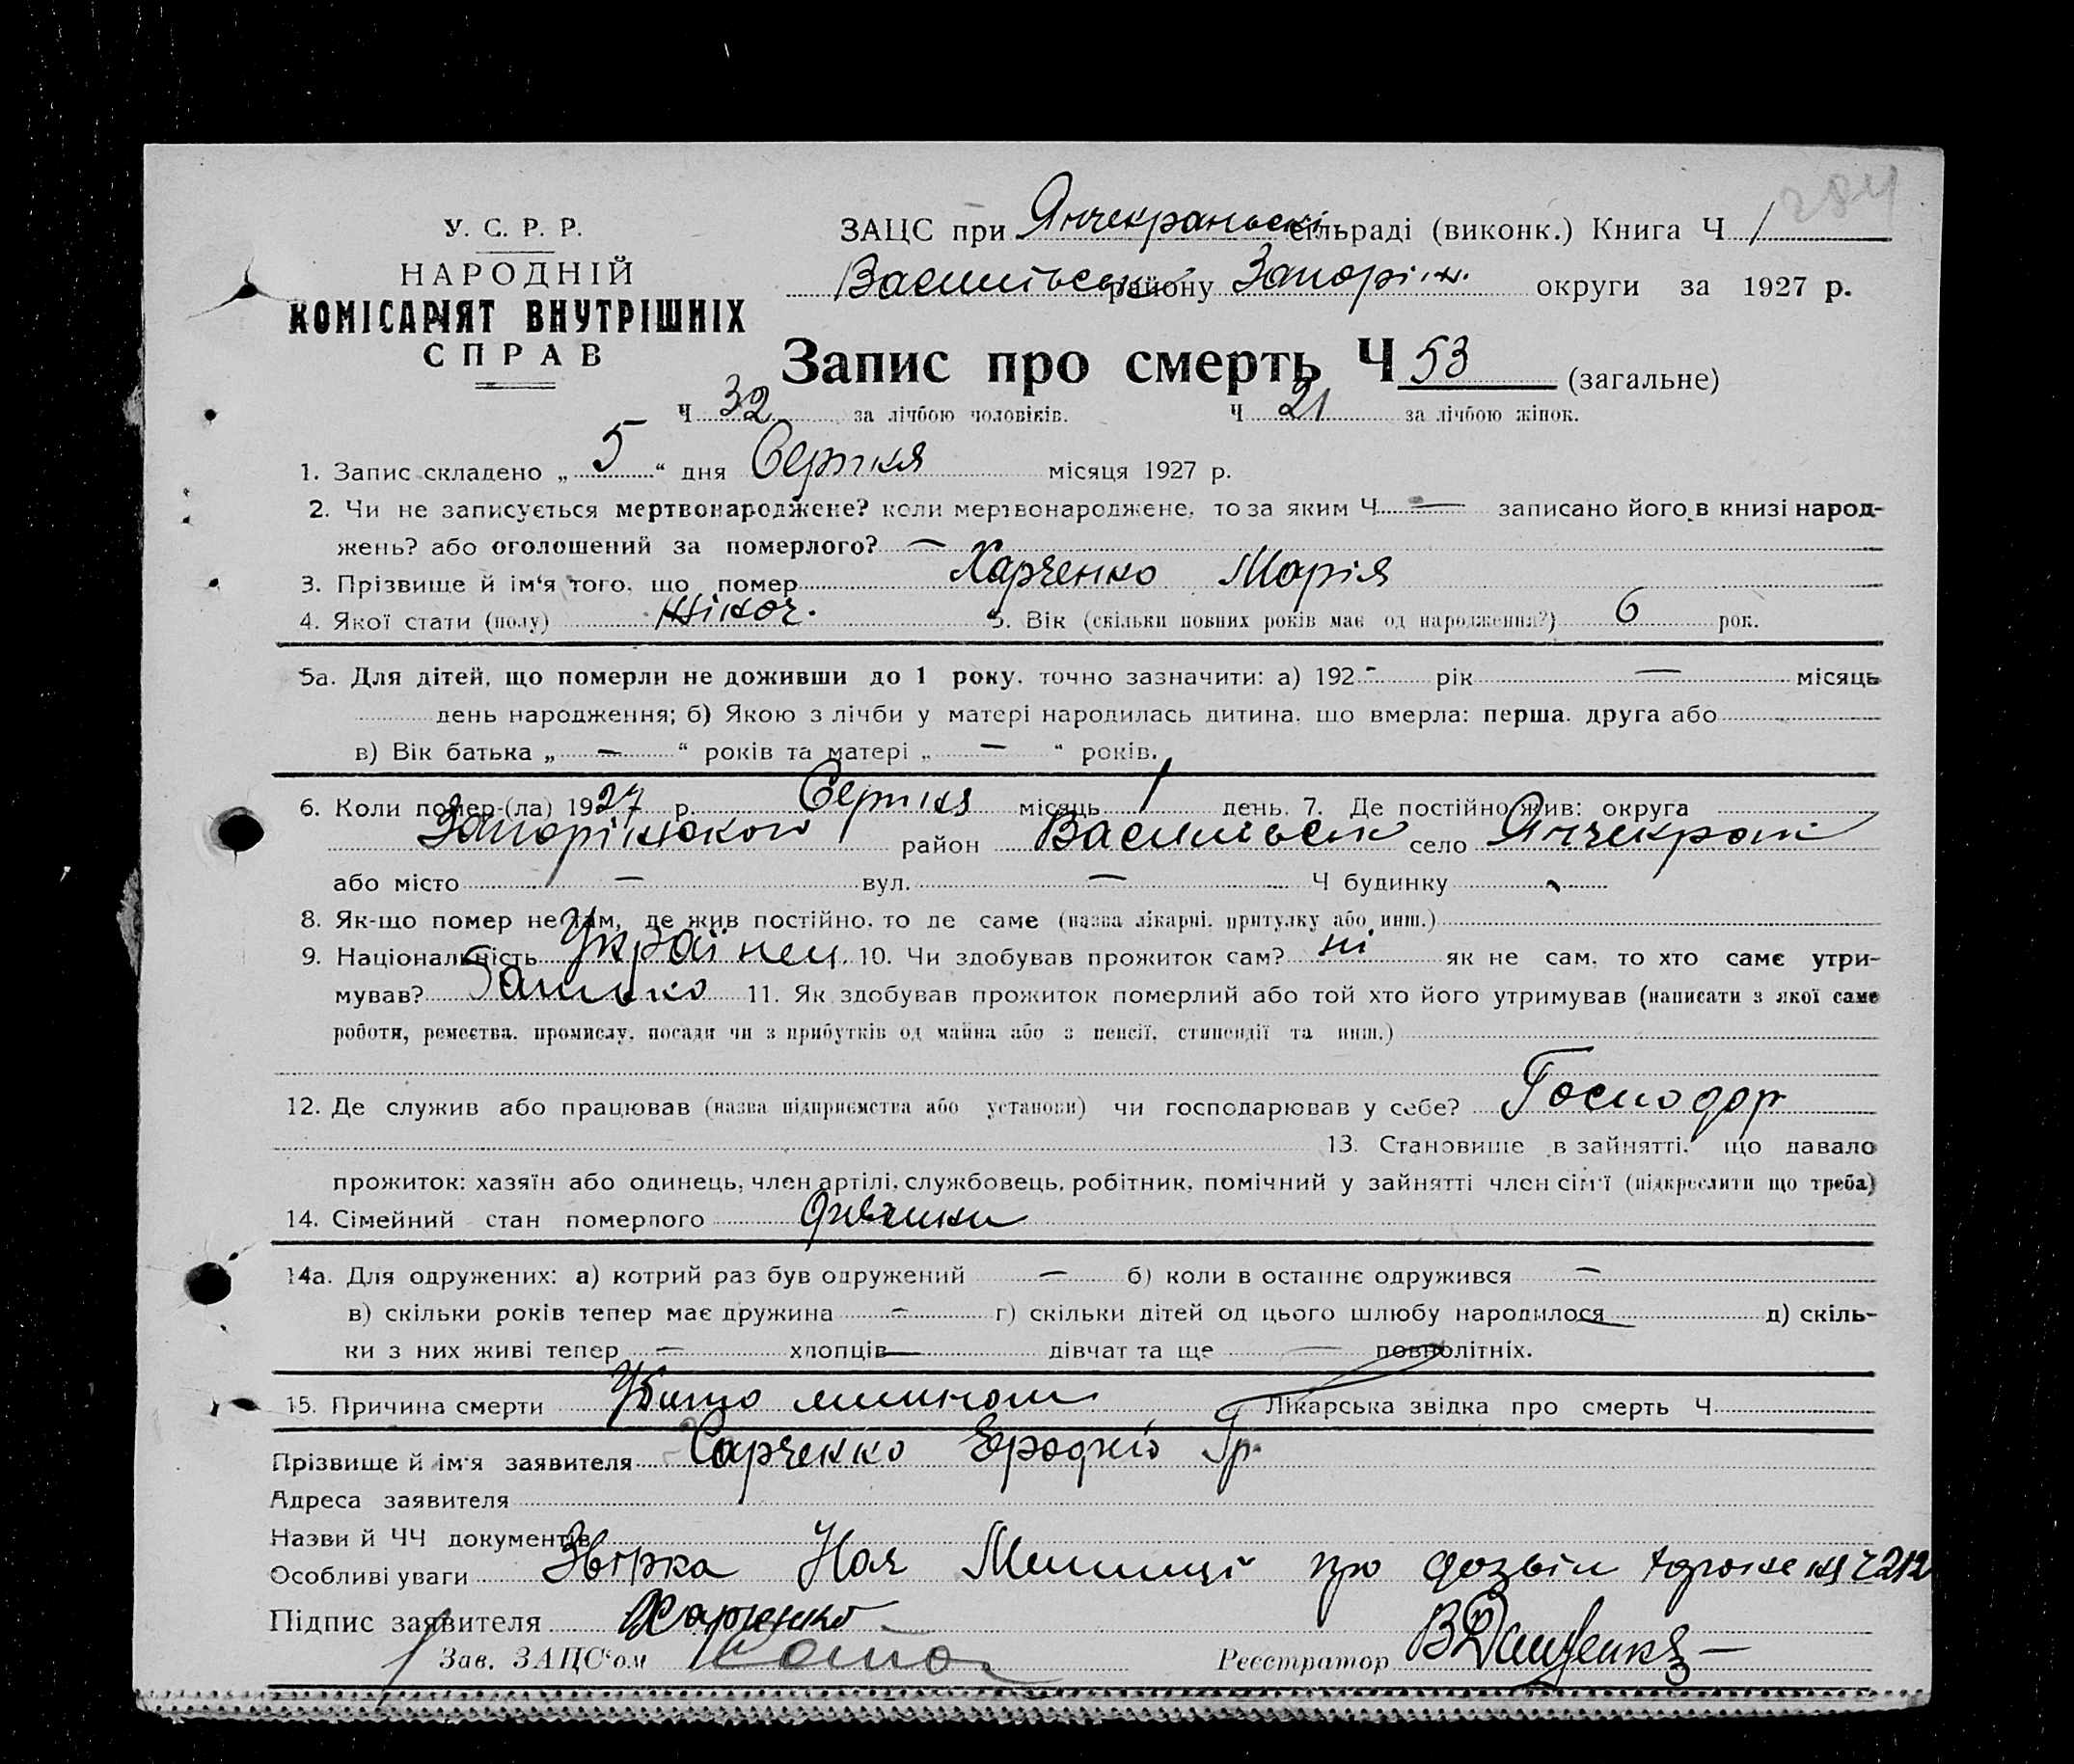 284
У. С. Р. Р.
НАРОДНІЙ
КОМІСАРІЯТ ВНУТРІШНІХ
СПРАВ
ЗАЦС при Янчекранській сільраді (виконк.) Книга Ч 1
Василівськ району Запоріж. округи за 1927 р.
Запис про смерть Ч 53 (загальне)
Ч 32 за лічбою чоловіків. Ч 21 за лічбою жінок.
1. Запис складено „ 5 “ дня Серпня місяця 1927 р.
2. Чи не записується мертвонароджене? коли мертвонароджене, то за яким Ч — записано його в книзі народ-
жень? або оголошений за померлого? —
3. Прізвище й ім‘я того, що помер Харченко Марія
4. Якої стати (полу) жіноч. 5. Вік (скільки повних років має од народження?) 6 рок.
5а. Для дітей, що померли не доживши до 1 року, точно зазначити: а) 192 - рік — місяць
день народження; б) Якою з лічби у матері народилась дитина, що вмерла: перша, друга або
в) Вік батька „ — “ років та матері „ — “ років.
6. Коли помер-(ла) 1927 р. Серпня місяць 1 день. 7. Де постійно жив: округа
Запоріжского район Василівськ село Янчекрак
або місто — вул. — Ч будинку -
8. Як-що помер не там, де жив постійно, то де саме (назва лікарні, притулку або инш.)
9. Національність Українец. 10. Чи здобував прожиток сам? ні як не сам, то хто саме утри-
мував? Батько 11. Як здобував прожиток померлий або той хто його утримував (написати з якої саме
роботи, ремества, промислу, посади чи з прибутків од майна або з пенсії, стипендії та инш.)
12. Де служив або працював (назва підприємства або установи) чи господарював у себе? Господар
13. Становище в зайнятті, що давало
прожиток: хазяїн або одинець, член артілі, службовець, робітник, помічний у зайнятті член сім‘ї (підкреслити що треба)
14. Сімейний стан померлого
14а. Для одружених: а) котрий раз був одружений — б) коли в останнє одружився —
в) скільки років тепер має дружина — г) скільки дітей од цього шлюбу народилося — д) скіль-
ки з них живі тепер — хлопців — дівчат та ще — повнолітніх.
15. Причина смерти Убито Лікарська звідка про смерть Ч
Прізвище й ім‘я заявителя Харченко Гр
Адреса заявителя
Назви й ЧЧ документів
Особливі уваги Нач Милиції про дозвіл 212
Підпис заявителя Харченко
Зав. ЗАЦС‘ом Реєстратор В Дащенко